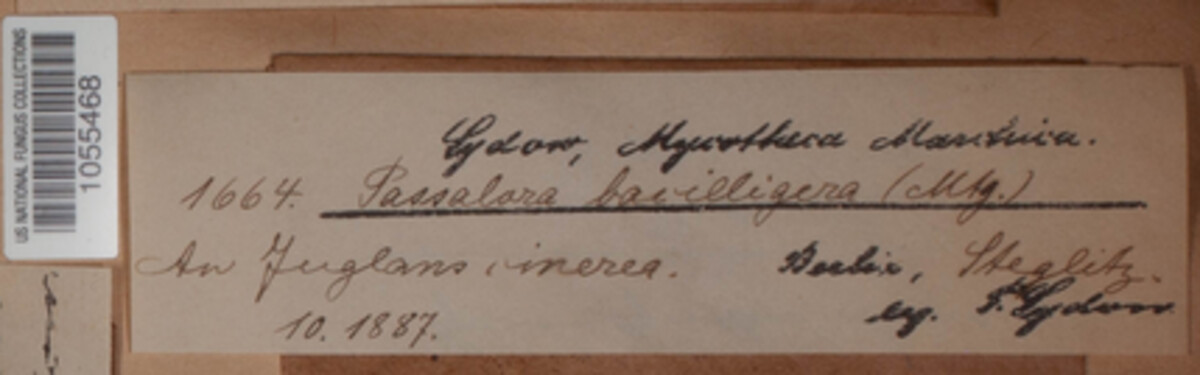 US NATIONAL FUNGUS COLLECTIONS
1055468
Sydow, Mycotheca Marchica.
1664. Passalora bacilligera (Mtg.)
An Juglans cinerea. Berlin, Steglitz.
10. 1887. leg. P. Sydow